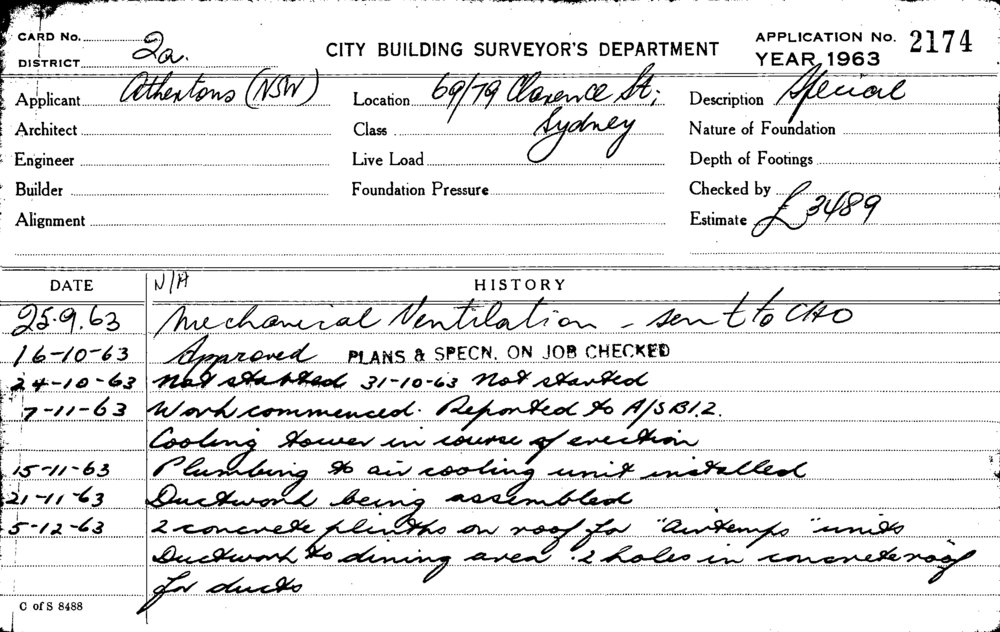 CARD No.
DISTRICT 2a.
CITY BUILDING SURVEYOR'S DEPARTMENT
APPLICATION No. 2174
YEAR 1963
Applicant Athertons (NSW)
Location 69/79 Clarence St; Sydney
Description Special
Architect
Class
Nature of Foundation
Engineer
Live Load
Depth of Footings
Builder
Foundation Pressure
Checked by
Alignment
Estimate £3489
DATE N/A HISTORY
25.9.63 Mechanical Ventilation - sent to CHO
16-10-63 Approved PLANS & SPECN. ON JOB CHECKED
24-10-63 Not started 31-10-63 Not started
7-11-63 Work commenced. Reported to A/SB12.
Cooling tower in course of erection
15-11-63 Plumbing to air cooling unit installed
21-11-63 Ductwork being assembled
5-12-63 2 concrete plinths on roof for "Airtemps" units
Ductwork to dining area. 2 holes in concrete roof
for ducts
C of S 8488